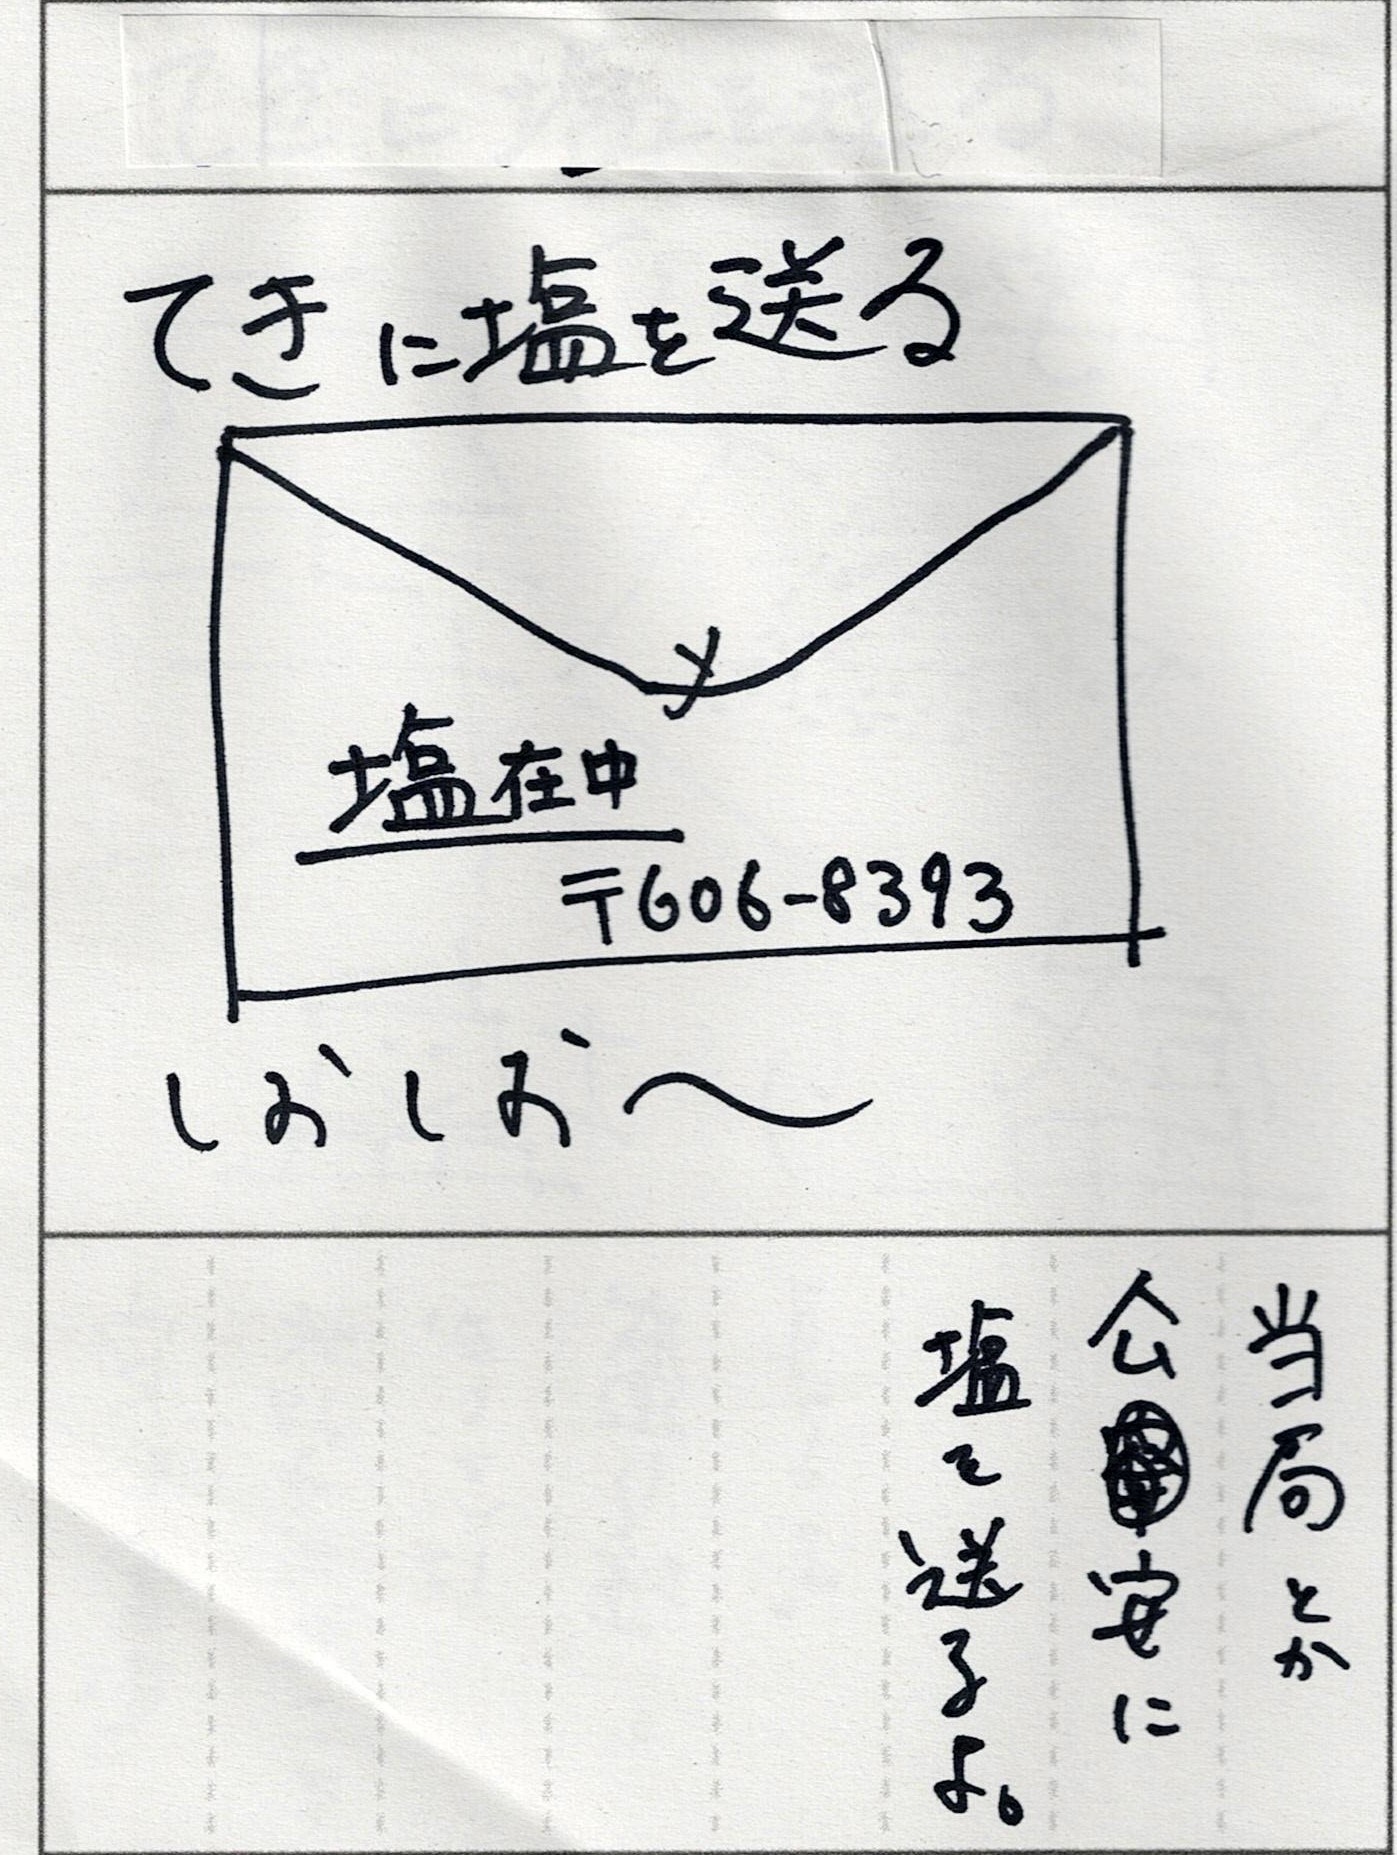 てきに塩を送る
塩在中
〒606-8393
しおしお〜
当局とか
公安に
塩を送るよ。